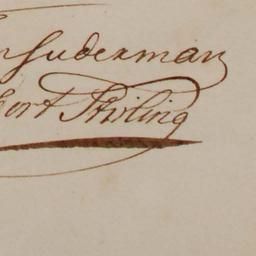 n Suderman
bert Stirling